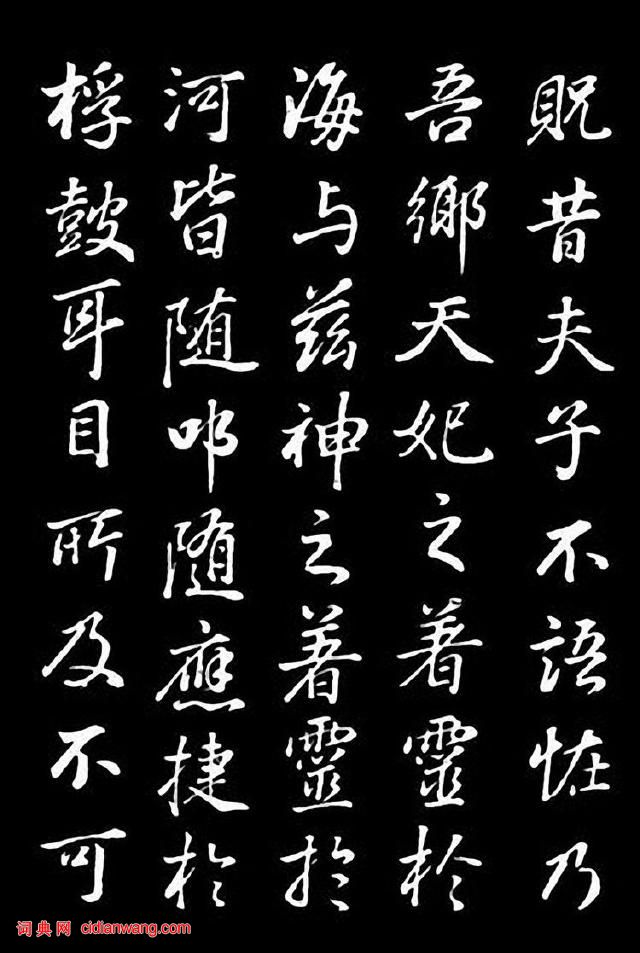 貺昔夫子不語恠乃
吾鄉天妃之著靈於
海与茲神之著靈於
河皆随叩随應捷於
桴鼓耳目所及不可
词典网 cidianwang.com